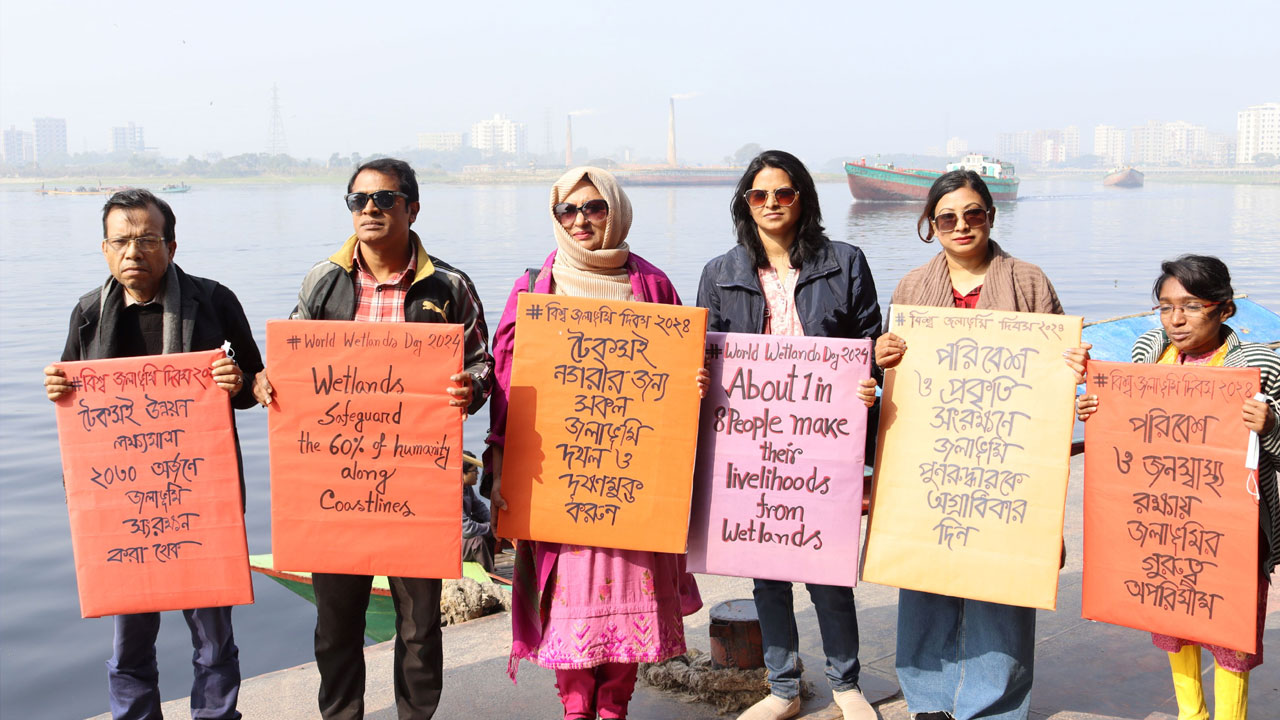 #বিশ্ব জলাভূমি দিবস ২০২৪
টেকসই উন্নয়ন
লক্ষ্যমাত্রা
২০৩০ অর্জনে
জলাভূমি
সংরক্ষন
করা হোক
#World Wetlands Day 2024
Wetlands
Safeguard
the 60% of humanity
along
Coastlines
#বিশ্ব জলাভূমি দিবস ২০২৪
টেকসই
নগরীর জন্য
সকল
জলাভূমি
দখল ও
দূষণমুক্ত
করুন
#World Wetlands Day 2024
About 1 in
8 People make
their
livelihoods
from
Wetlands
#বিশ্ব জলাভূমি দিবস ২০২৪
পরিবেশ
ও প্রকৃতি
সংরক্ষনে
জলাভূমি
পুনরুদ্ধারকে
অগ্রাধিকার
দিন
#বিশ্ব জলাভূমি দিবস ২০২৪
পরিবেশ
ও জনস্বাস্থ্য
রক্ষায়
জলাভূমির
গুরুত্ব
অপরিসীম